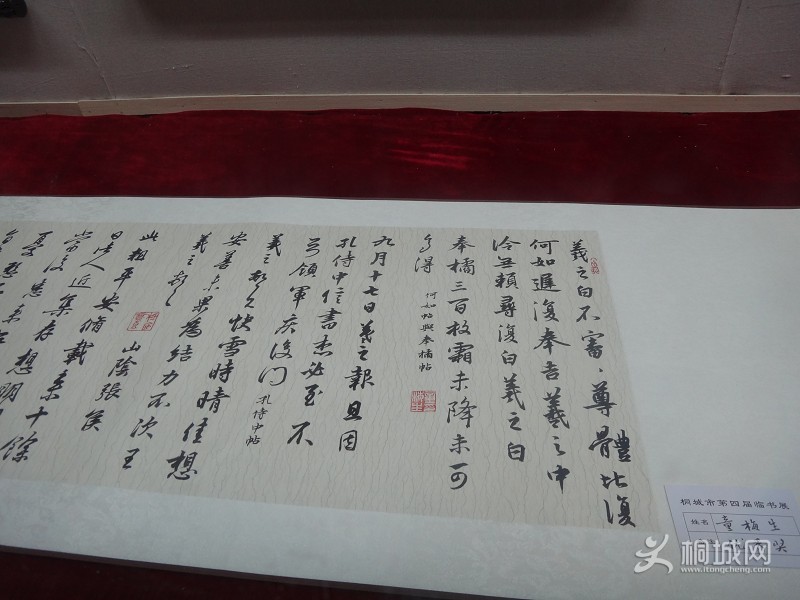 羲之白不審尊體比復
何如遲復奉告羲之中
冷無賴尋復白羲之白
奉橘三百枚霜未降未可
多得
何如帖與奉橘帖
九月十七日羲之報且因
孔侍中信書想必至不
知領軍疾後問 孔侍中帖
羲之頓首快雪時晴佳想
安善未果為結力不次王
羲之頓首 山陰張侯
此粗平安脩載來十餘
日諸人近集存想明
桐城市第四届临书展
姓名 童梅生
桐城网
www.itongcheng.com